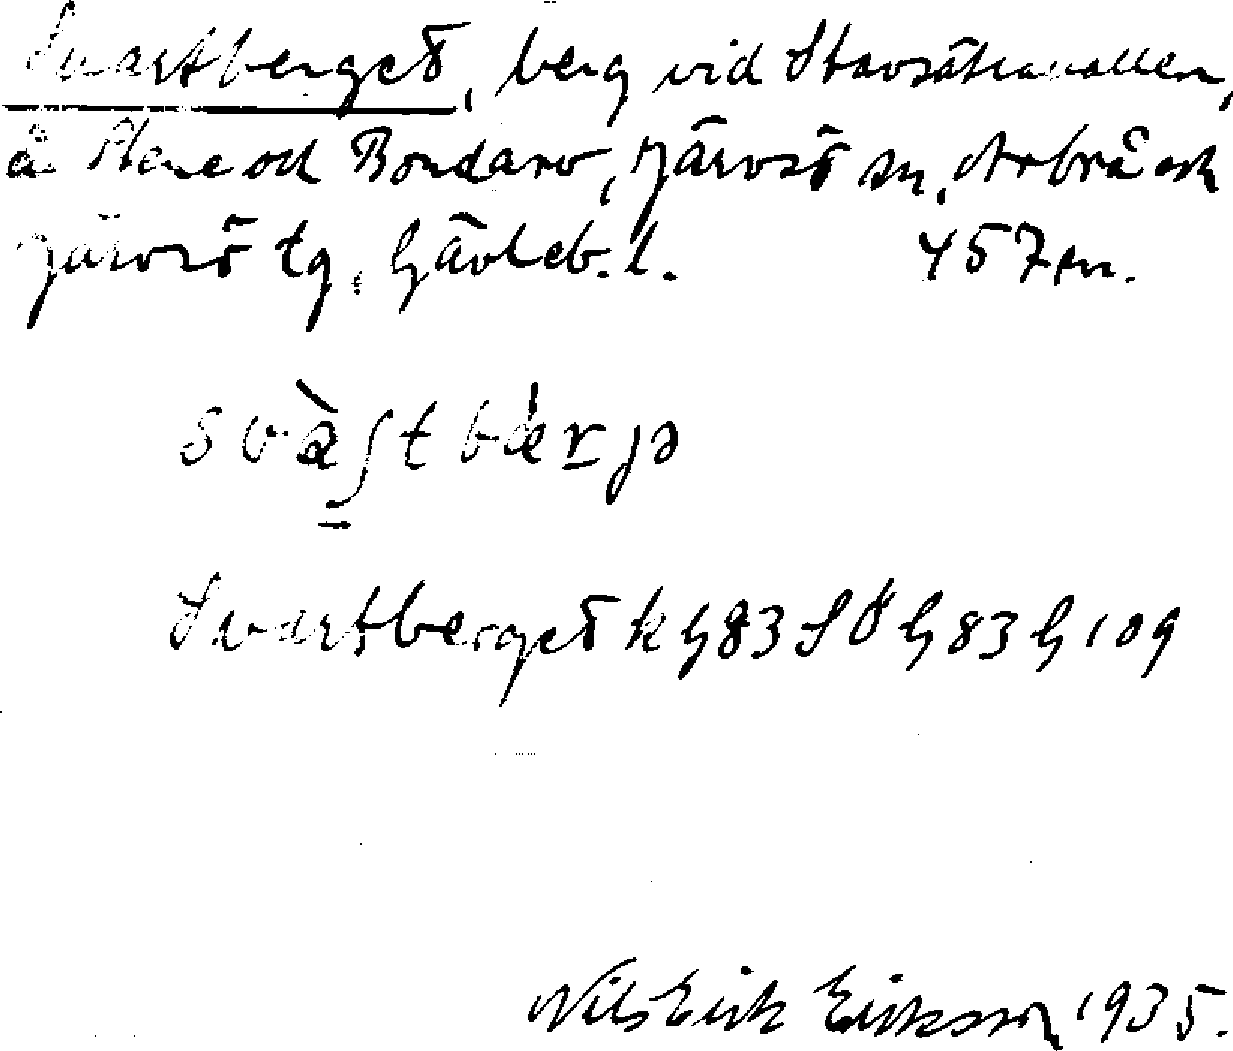 Svartberget, berg vid Stavsätravallen,
å Stene och Bondarv, Järvsö sn, Arbrå och
Järvsö tg, Gävleb. l. 457 m.
svæ̀ʃtbærjə
Svartberget k G 83 SÖ G 83 G 109
Nils Erik Eriksson 1935.